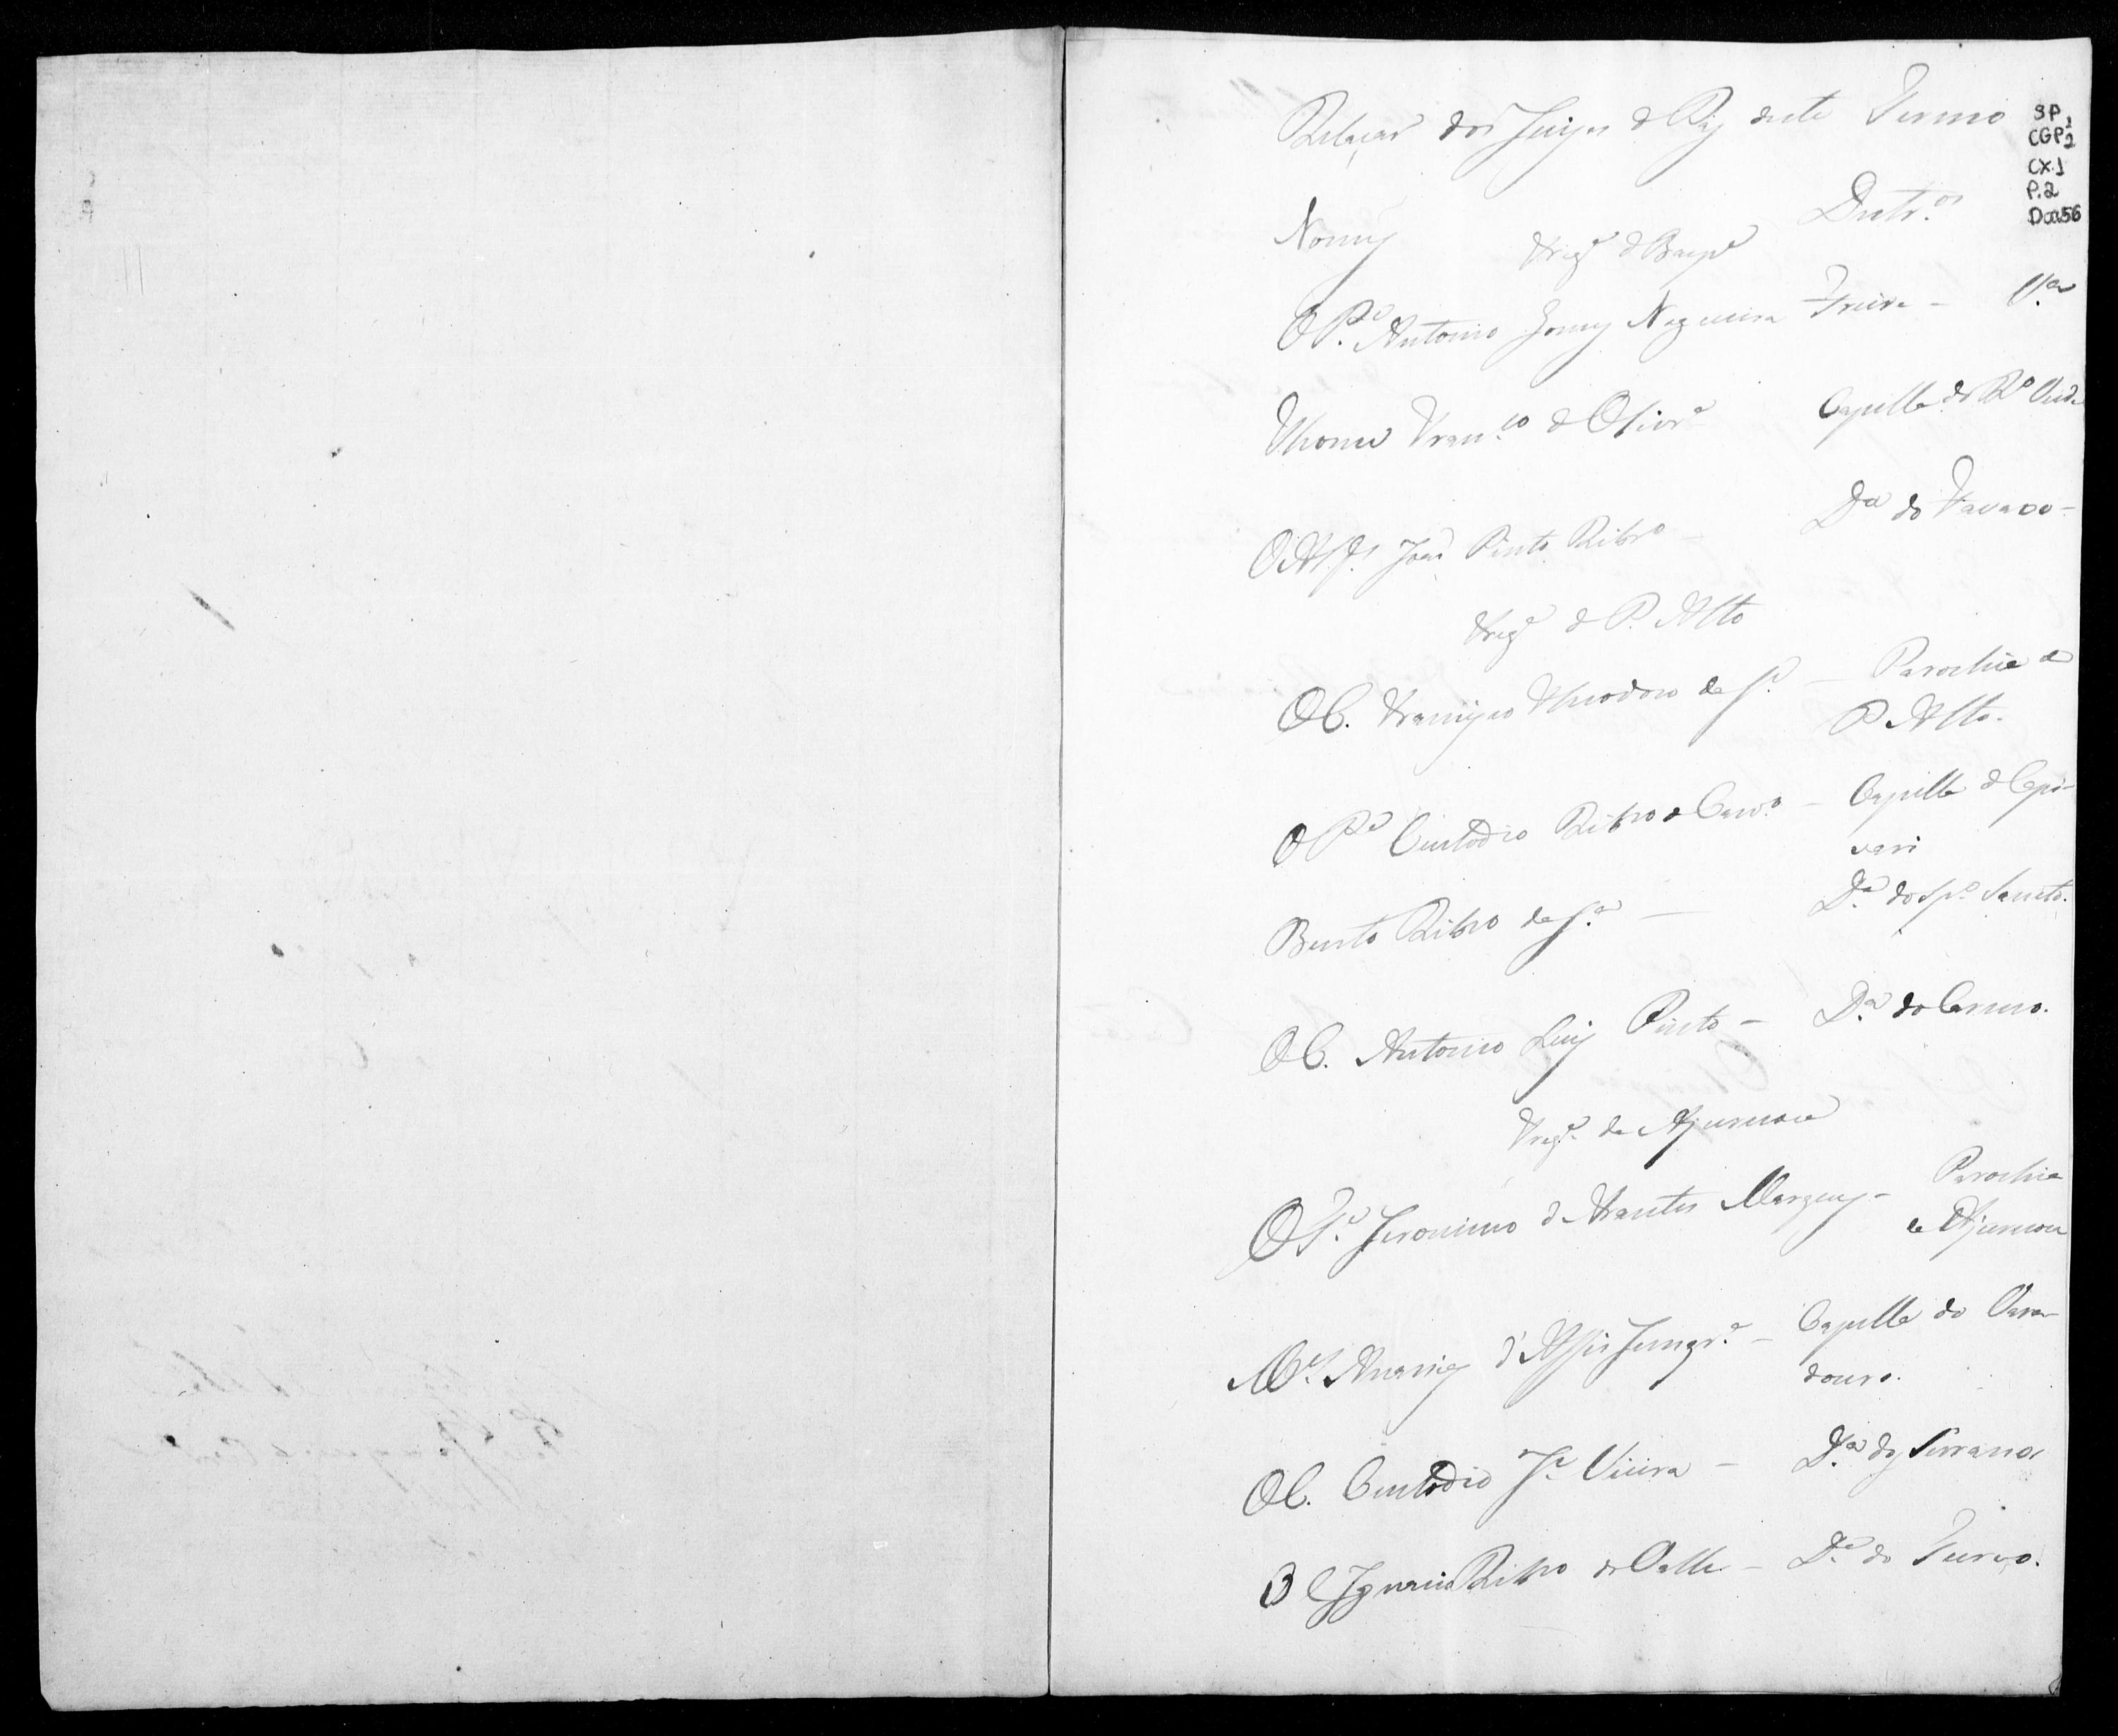 Relaçaõ dos Juizes de Paz deste Termo
SP1
CGP2
CX.1
P.2
Doc.56
Nomes Destr.os
Freg.a de Baep.e
O P.e Antonio Gomes Nogueira Freire - V.a
Thome Fran.co de Oliv.ra Capella do R.o Verde
O Alf.s João Pinto Ribr.o - D.a do Favacho -
Freg.a de P. Alto
O C. Francisco Theodoro da S.a - Parochia de
P. Alto.
O P.e Custodio Ribro de Carv.o - Capella de Capi-
vari
Bento Ribro da S.a - D.a do Sp.o Sancto.
O C. Antonio Luiz Pinto - D.a do Carmo.
Freg.a da Ajuruoca
O T.e Jeronimo d'Arantes Marques - Parochia
da Ajuruoca
M.el d'Assis Junqr.a - Capella do Varadouro.
O C. Custodio J.e Vieira - D.a dos Serranos
O C Ignacio Ribro do Valle - D.a do Turvo.